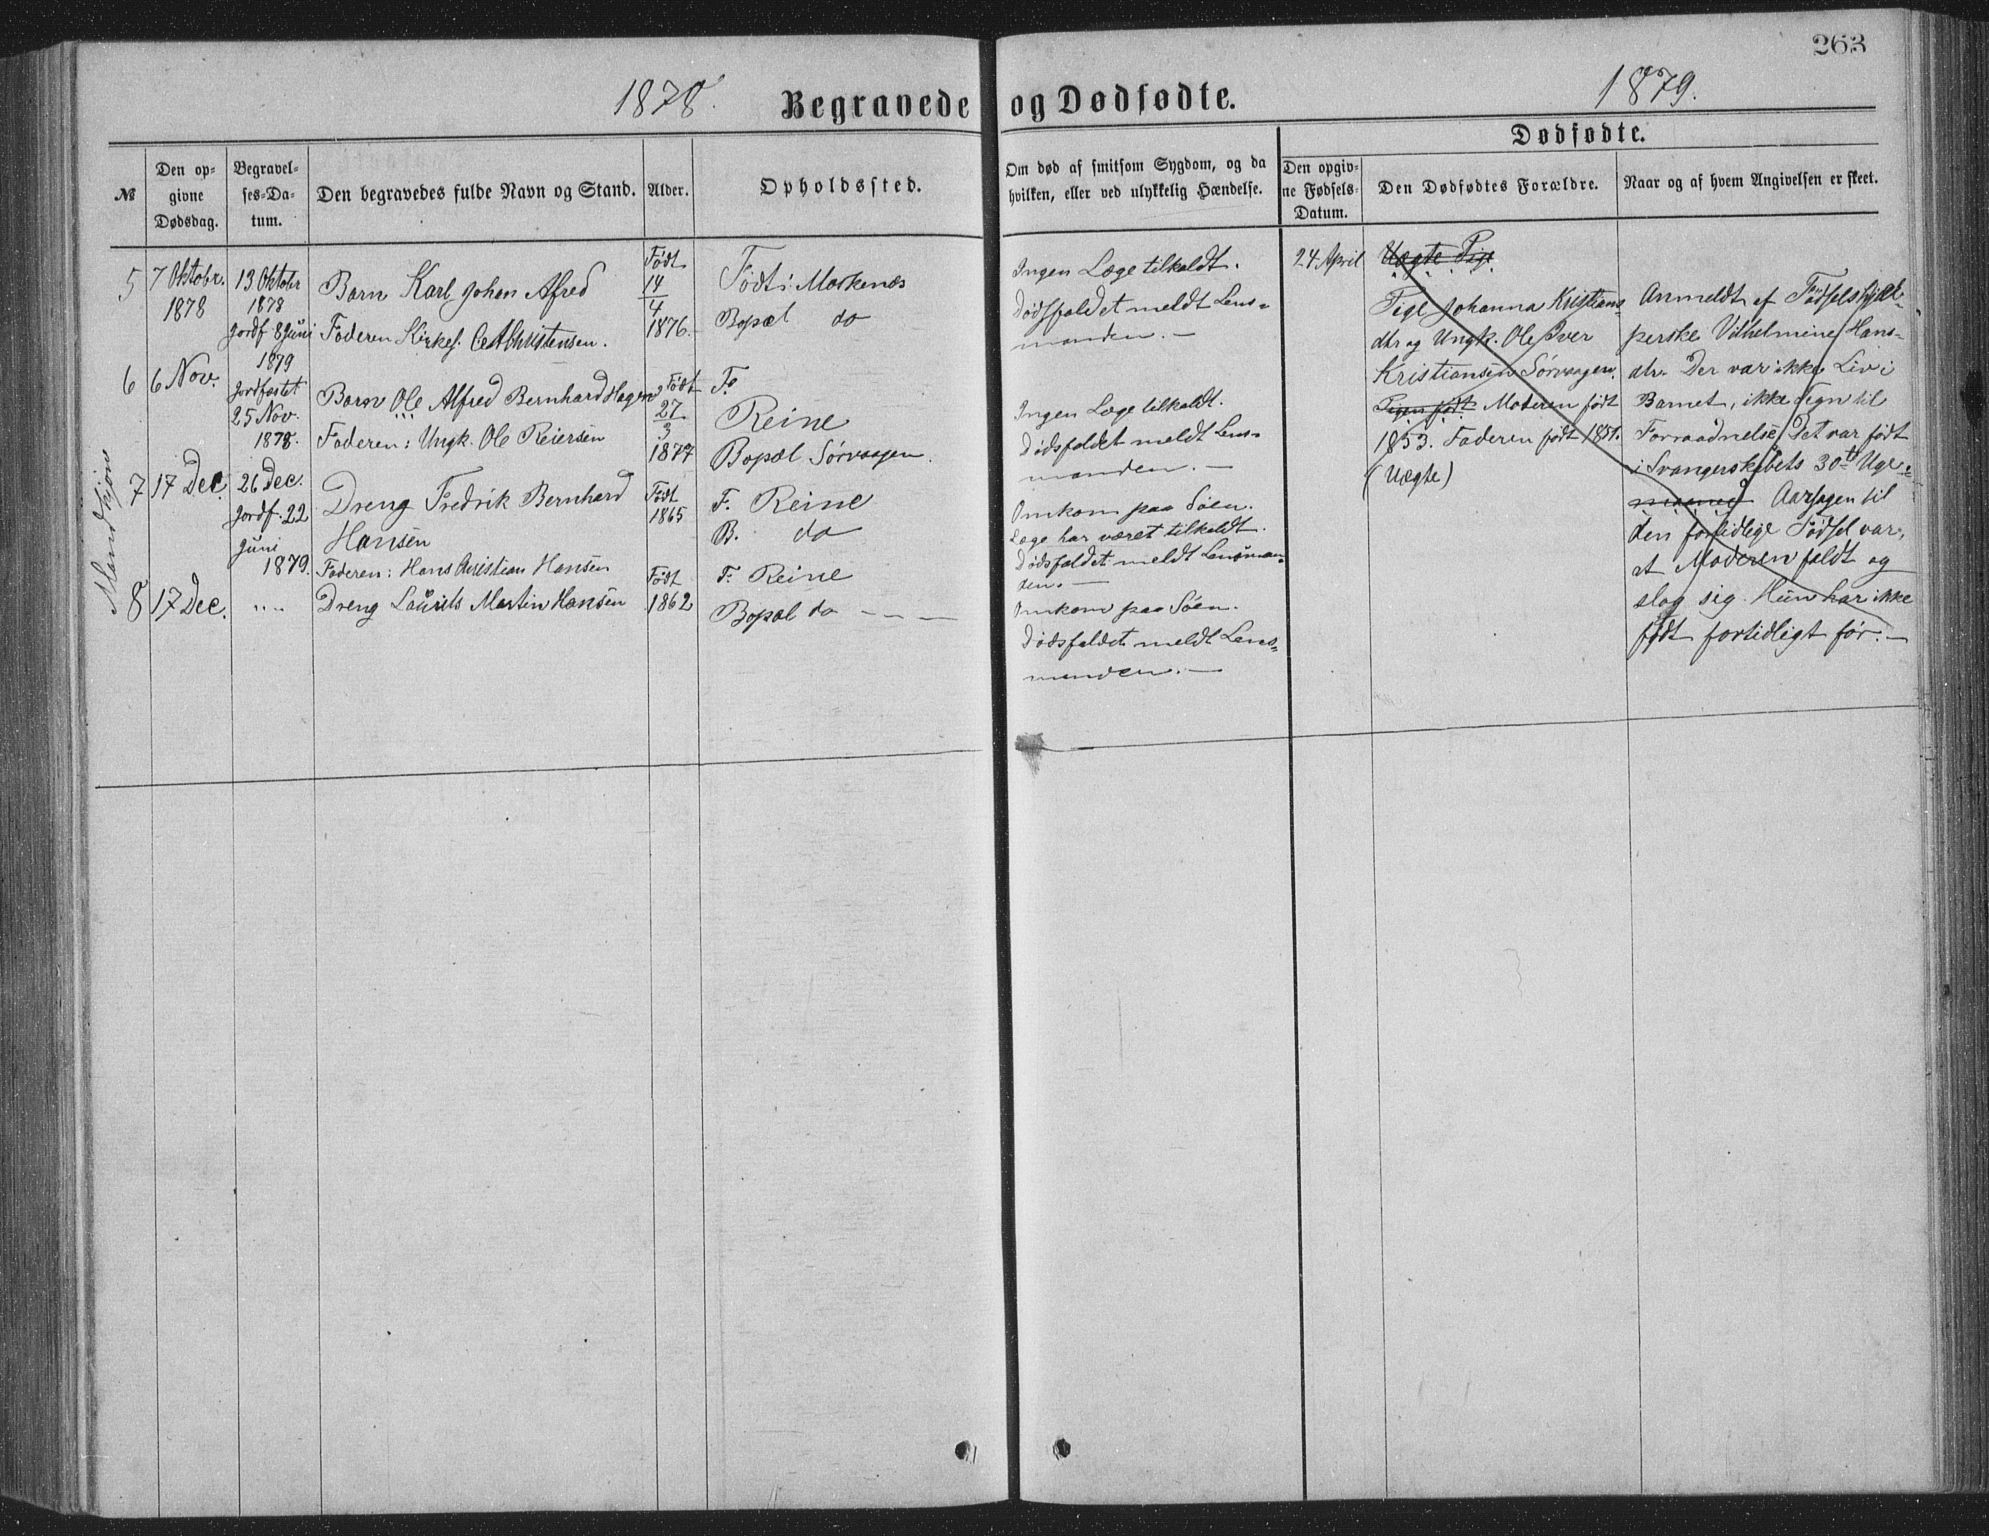 263
1878.
Begravede og Dødfødte.
1879.
Dødfødte.
№
Den op-
givne
Dødsdag.
Begravel-
ses-Da-
tum.
Den begravedes fulde Navn og Stand.
Alder.
Opholdssted.
Om død af smitsom Sygdom, og da
hvilken, eller ved ulykkelig Hændelse.
Den opgiv-
ne Fødsels-
Datum.
Den Dødfødtes Forældre.
Naar og af hvem Angivelsen er skeet.
Mandkjøn
5
7 Oktobr.
1878
13 Oktobr
1878
Jordf 8 Juni
1879
Barn Karl Johan Alfred
Faderen Kirkes. Christensen.
Født
14
4
1876.
Født i Moskenæs
Bopæl do
Ingen Læge tilkaldt.
Dødsfaldet meldt Lens-
manden. —
6
6 Nov.
Jordfæstet
25 Nov.
1878.
Barn Ole Alfred Bernhard Hagen
Faderen: Ungk. Ole Reiersen
Født
27
3
1877
F.
Reine
Bopæl Sørvaagen.
Ingen Læge tilkaldt.
Dødsfaldet meldt Lens-
manden. —
7
17 Dec.
26 Dec.
Jordf. 22
Juni
1879.
Dreng Fredrik Bernhard
Hansen
Faderen: Hans Christian Hansen
Født
1865
F. Reine
B. do
Omkom paa Søen.
Læge har været tilkaldt.
Dødsfaldet meldt Lensman-
den. —
8
17 Dec.
" "
Dreng Laurits Martin Hansen
Født
1862
F. Reine
Bopæl do — — —
Omkom paa Søen.
Dødsfaldet meldt Lens-
manden. —
24. April
Uægte Pige
Pige Johanna Kristians-
dtr og Ungk. Ole Iver
Kristiansen Sørvaagen.
Pigen født Moderen født
1853. Faderen født 1851.
(Uægte)
Anmeldt af Fødselshjæl-
perske Vilhelmine Hans-
dtr. Der var ikke Liv i
Barnet, ikke Tegn til
Forraadnelse. Det var født
i Svangerskabets 30te Uge.
maaned Aarsagen til
den fortidlige Fødsel var,
at Moderen faldt og
slog sig. Hun har ikke
født fortidligt før. —